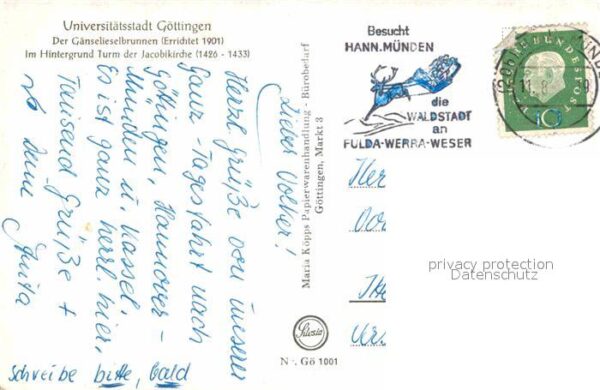 Universitätsstadt Göttingen
Der Gänselieselbrunnen (Errichtet 1901)
Im Hintergrund Turm der Jacobikirche (1426 - 1433)
Lieber Volker!
Herzl. Grüße von unserer
Ganz-Tagesfahrt nach
Göttingen, Hannover-
Münden u. Kassel.
Es ist ganz herrl. hier.
Tausend Grüße +
Deine
Anita
schreibe bitte, bald
Maria Köpps Papierwarenhandlung - Bürobedarf
Göttingen, Markt 3
Silesia
Nr. Gö 1001
Besucht
HANN.MÜNDEN
die
WALDSTADT
an
FULDA-WERRA-WESER
DEUTSCHE BUNDESPOST
10
Her
privacy protection
Datenschutz